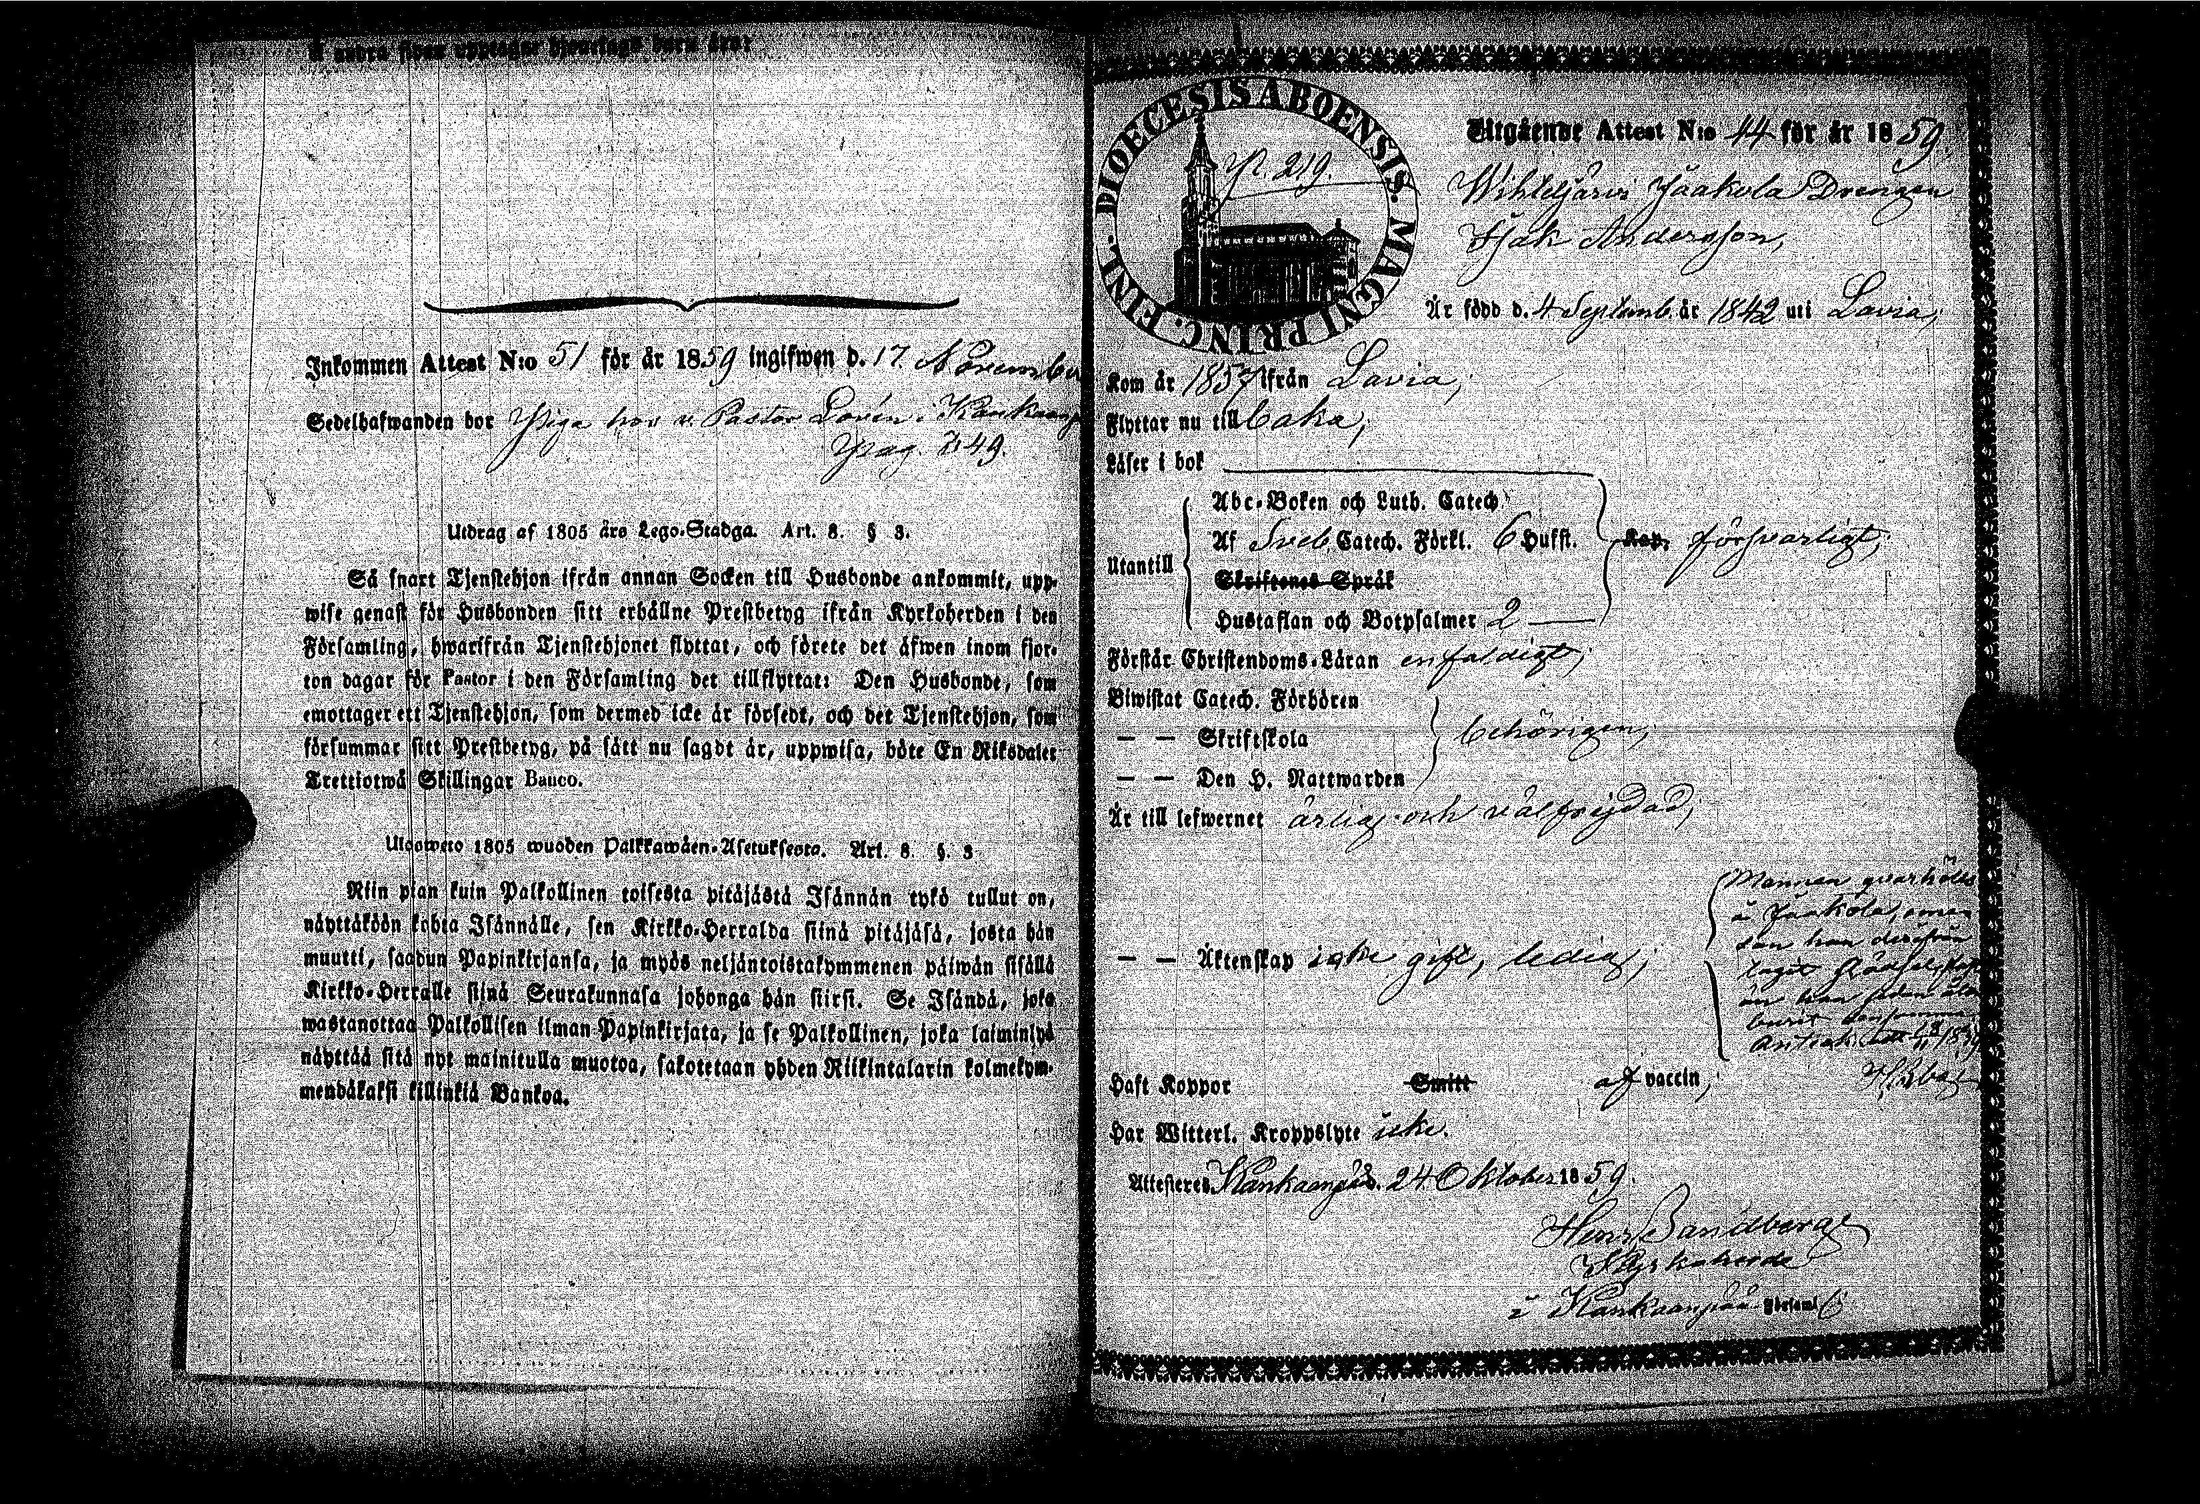 Å andra sidan upptagne hjonelags barn äro:
Inkommen Attest N:o 51 för år 1859 ingifwen d. 17. November
Sedelhafwanden bor Piga hos v. Pastor Lorén i Kankaanp
Pag. 749.
Utdrag af 1805 års Lego-Stadga. Art. 8. § 3.
Så snart Tjenstehjon ifrån annan Socken till Husbonde ankommit, upp-
wise genast för Husbonden sitt erhållne Prestbetyg ifrån Kyrkoherden i den
Församling, hwarifrån Tjenstehjonet flyttat, och förete det äfwen inom fjor-
ton dagar för Pastor i den Församling det tillflyttat: Den Husbonde, som
emottager ett Tjenstehjon, som dermed icke är försedt, och det Tjenstehjon, som
försummar sitt Prestbetyg, på sätt nu sagdt är, uppwisa, böte En Riksdaler
Trettiotwå Skillingar Banco.
Ulosweto 1805 wuoden Palkkawäen-Asetuksesta. Art. 8. §. 3
Niin pian kuin Palkollinen toisesta pitäjästä Isännän tykö tullut on,
näyttäköön kohta Isännälle, sen Kirkko-Herralda siinä pitäjäsä, josta hän
muutti, saadun Papinkirjansa, ja myös neljäntoistakymmenen päiwän sisällä
Kirkko-Herralle siinä Seurakunnasa johonga hän siirsi. Se Isändä, joka
wastanottaa Palkollisen ilman Papinkirjata, ja se Palkollinen, joka laiminlyö
näyttää sitä nyt mainitulla muotoa, sakotetaan yhden Riikintalarin kolmekym-
mendäkaksi killinkiä Bankoa.
DIOECESIS ABOENSIS. MAGNI PRINC. FINL.
P. 219.
Utgående Attest N:o 44 för år 1859.
Wihteljärvi Jaakola Drengen
Isak Andersson,
Är född d. 4 Septemb. år 1842 uti Lavia;
Kom år 1857 ifrån Lavia;
Flyttar nu till
Läser i bok
Abc-Boken och Luth. Catech
Utantill Af Sveb. Catech. Förkl. 6 Hufst. Kap. försvarligt;
Skriftenes Språk
Hustaflan och Botpsalmer 2
Förstår Christendoms-Läran enfaldigt;
Biwistat Catech. Förhören
— — Skriftskola behörigen;
— — Den H. Nattwarden
Är till lefwernet ärlig och välfrejdad;
— — Äktenskap icke gift, ledig;
Mannen qvarhölls
å Jaakola,
han
Haft Koppor Smitt af vaccin;
Har Witterl. Kroppslyte icke.
Attesteres Kankaanpää. 24 Oktober 1859.
Henr. Sandberg
Kyrkoherde
i Kankaanpää Församl